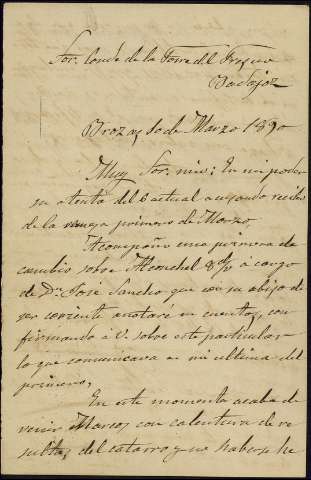 Sor. Conde de la Torre del Fresno
Badajoz
Brozas 10 de Marzo 1890
Muy Sor. mio: En mi poder
su atenta del 6 actual acusando recibo
de la mia primero de Marzo
Acompaño una primera de
cambio sobre Alconchel 8 d/v á cargo
de Dn. José Sancho que con su abijo de
ser corriente anotaré en cuenta, con
firmando á V. sobre este particular
lo que comunicava en mi ultima del
primero,
En este momento acaba de
venir Marcos con calentura de re
sultas, del catarro y no haberse he